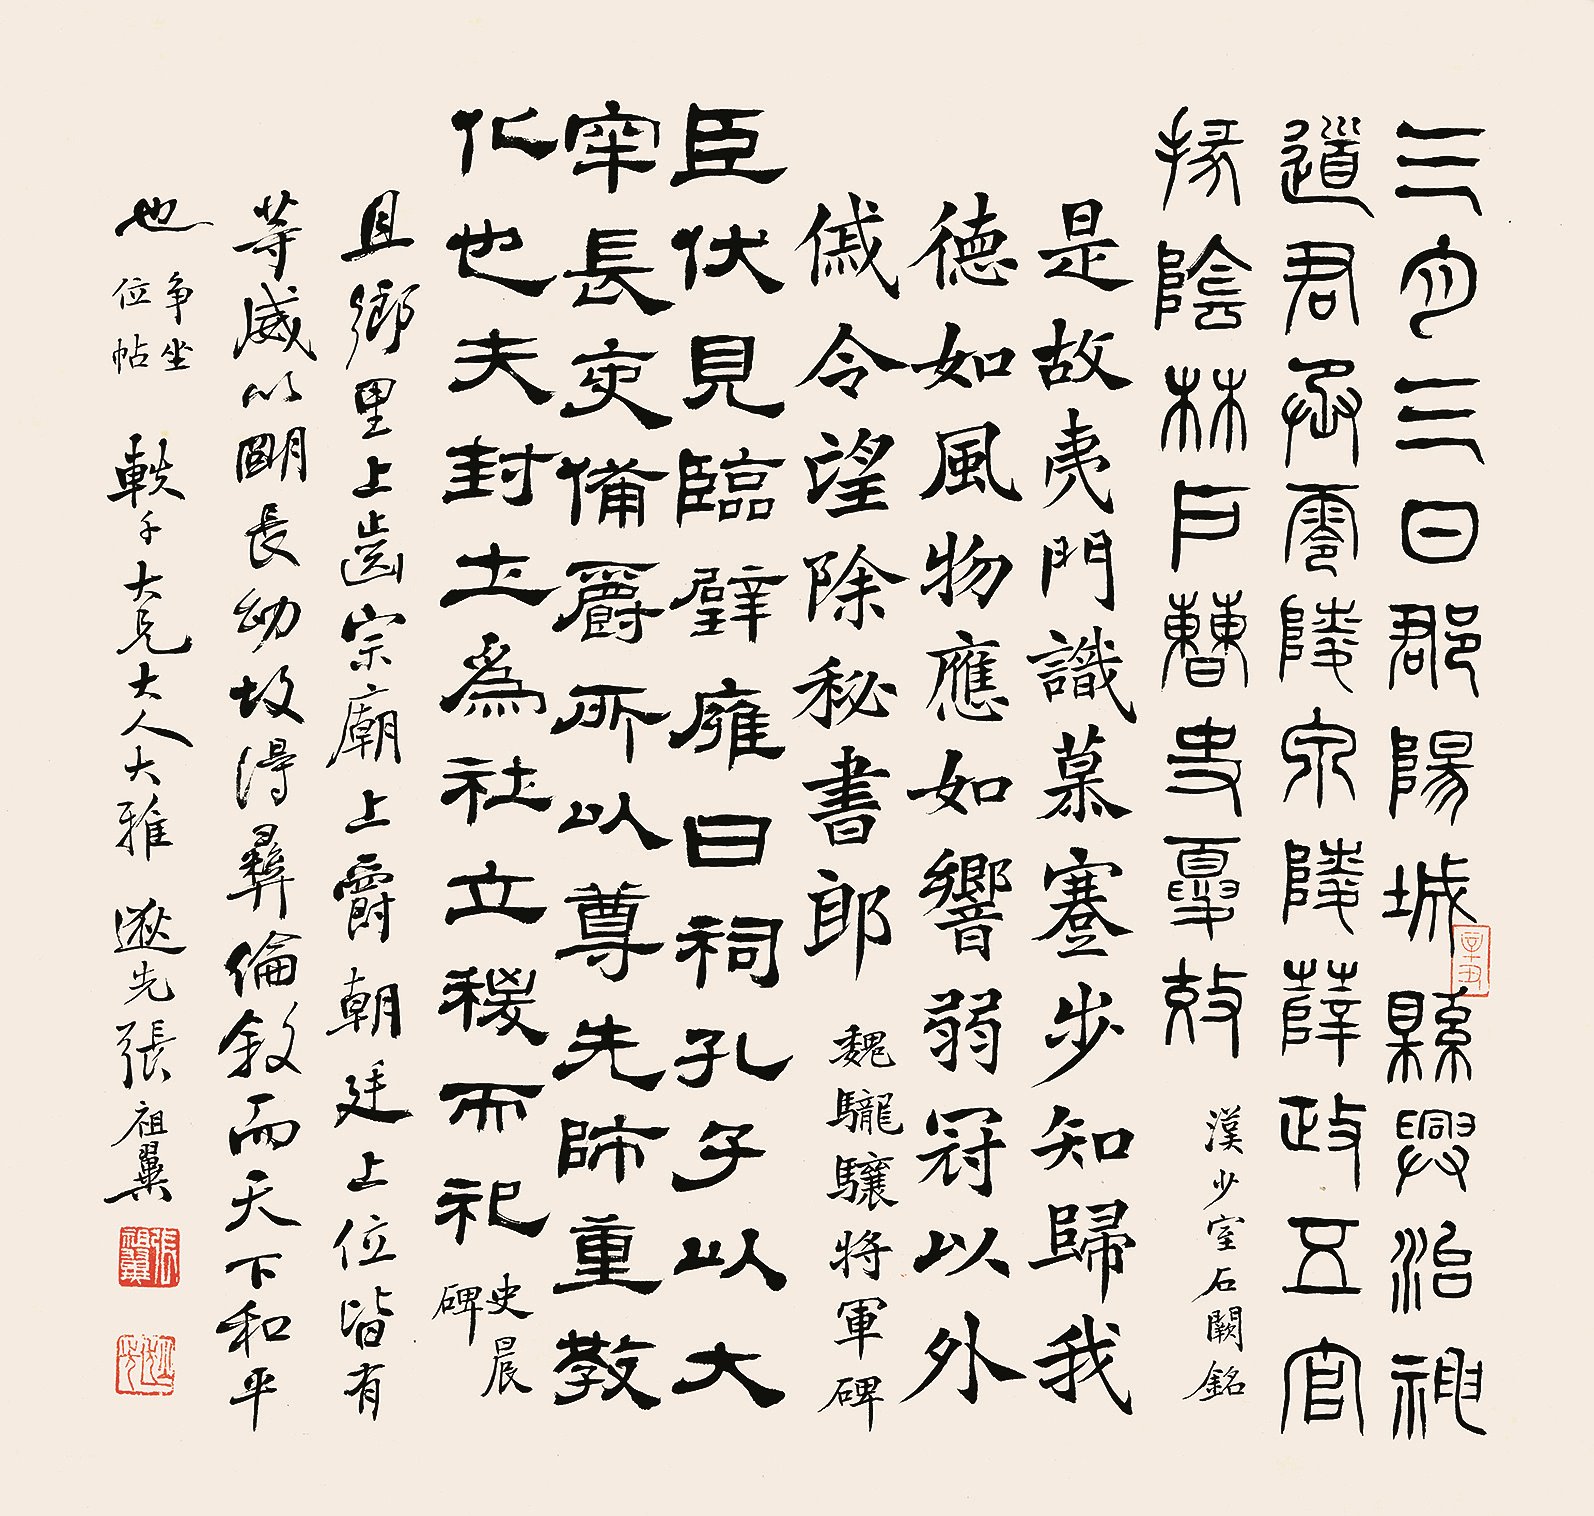 三月三日郡陽城縣興治神
道君丞零陵泉陵薛政五官
掾陰林戶曹史夏效
漢少室石闕銘
是故夷門識慕蹇步知歸我
德如風物應如響弱冠以外
戚令望除秘書郎
魏驪驤將軍碑
臣伏見臨璧雍日祠孔子以大
牢長吏備爵所以尊先師重教
化也夫封土為社立稷而祀
史晨
碑
且鄉里上齒宗廟上爵朝廷上位皆有
等威以明長幼故得彝倫敘而天下和平
也
爭坐
位帖
軼千大兄大人大雅 逖先張祖翼
張祖翼
逖先